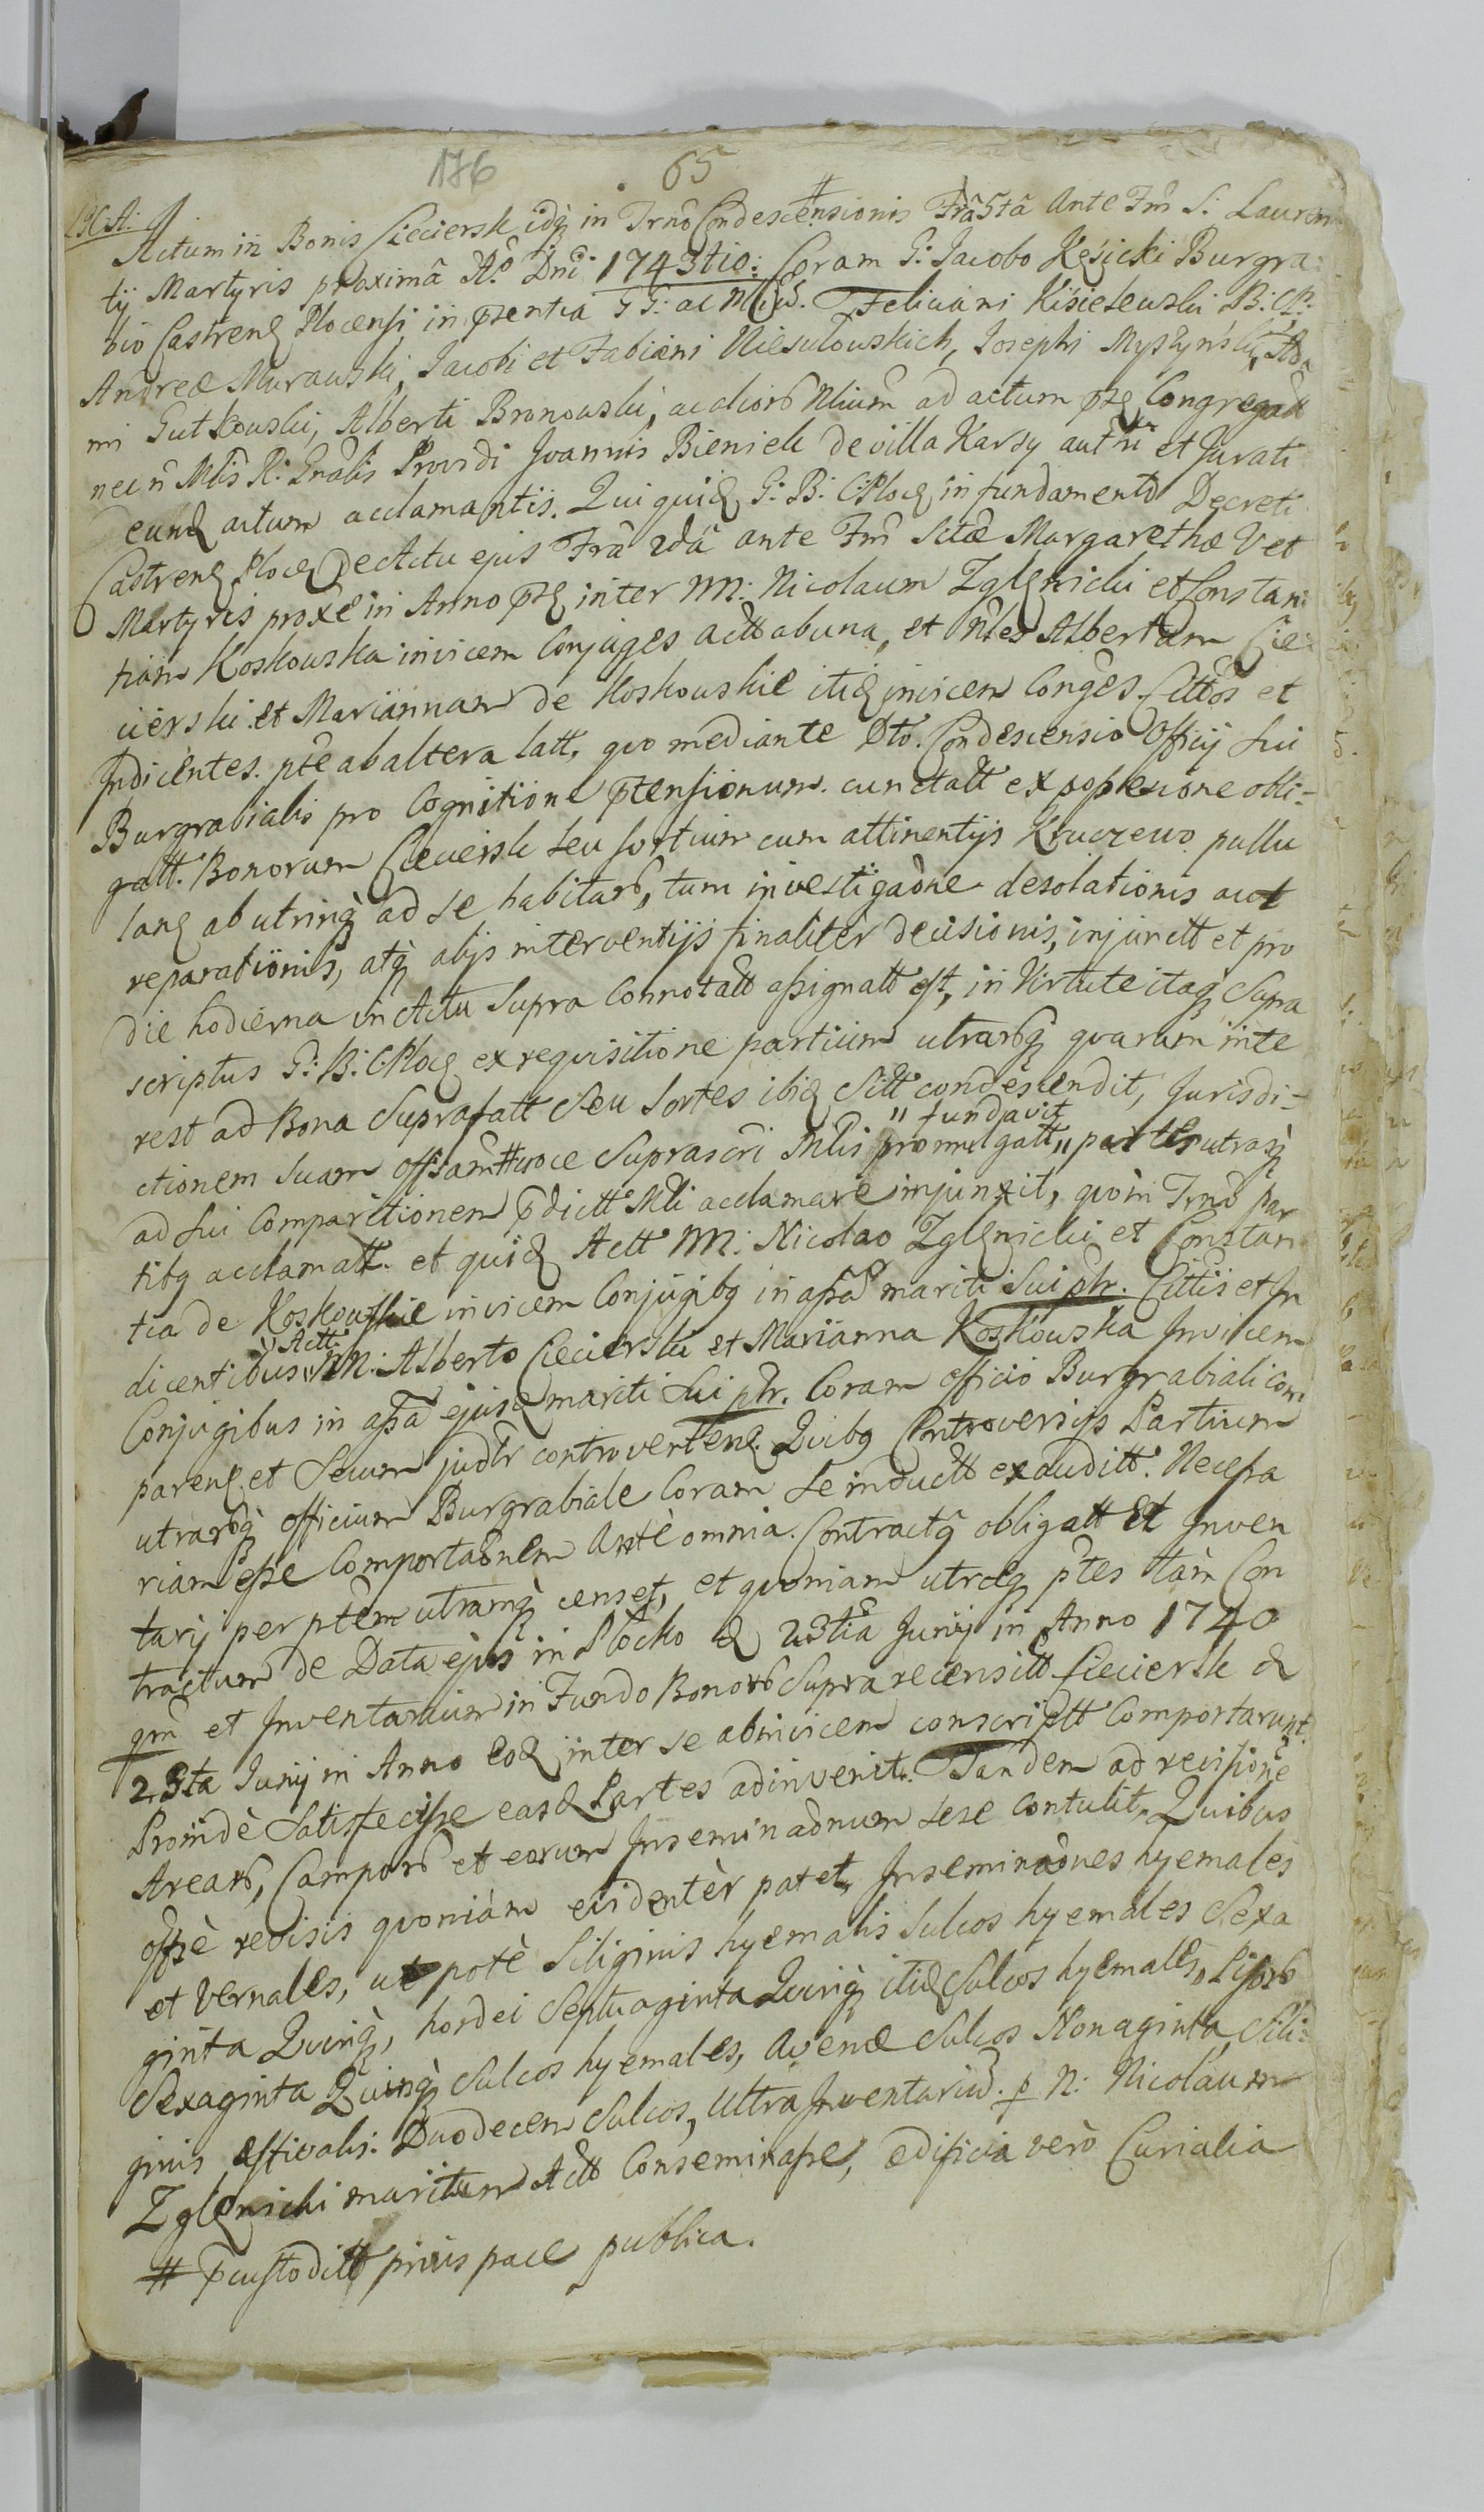 176 65
Actum in Bonis Cieciersk idq̃ in Trno Condescensionis Frã 5tã Ante Fm̃ S: Lauren
tij Martyris proximã Aõ Dni 1743tio: Coram G: Jacobo Kęsicki Burgra:
bio Castren Plocensi in pzentia GG: ac Feliciani Kisielewski B: C: P:
Andreæ Murawski, Jacobi et Fabiani Niesułowskich, Josephi Myszyński, Ada
mi Gutkowski, Alberti Bronowski, ac aliorb Nlium ad actum pze Congregatt
nec ñ Mlis R: Gnãlis Providi Joannis Bieniek de villa Karsy autñi et Jurati
eund actum acclamantis. Qui quid G: B: C: Ploc in fundamento Decreti
Castren Ploc de Actu ejus Frã 2dã ante Fm̃ Sctæ Margarethæ V et
Martyris proxe in Anno pze inter M: Nicolaum Zglenicki et Constan:
tiam Koskowska invicem Conjuges actt ab una, et Nles Albertum Cie:
cierski et Mariannam de Koskowskie itid invicem Conges Cittos et
Indicentes pte ab altera latt, quo mediante Dto Condescensio Officij Sui
Burgrabialis pro Cognitione ptensionum cunctatt ex possessione obli=
gatt. Bonorum Cieciersk seu sortium cum attinentijs Kruczewo pullu
lan ab utrinq̃ ad se habitarb, tum investigaõne desolationis aut
reparationis, atq̃ alijs interventijs finaliter decisionis, injunctt et pro
die hodierna in Actu Supra Connotatt assignatt est, in Virtute itaq Supra
scriptus G: B: C: Ploc ex requisitione partium utrarbq quarum inte
rest ad Bona Suprafatt Seu Sortes ibid Sitt condescendit, Jurisdi=
ctionem Suam offiam # voce Suprascri Mlis promulgatt " fundavit " partes utrasq̃
ad sui Comparitionem pdictt Mli acclamare injunxit, quo in Trno par
tibq acclamatt. et quid Actt M: Nicolao Zglenicki et Constan
tia de Koskowskie invicem Conjugibq in assã mariti Sui ptr. Cittis et In
dicentibus, Actt M: Alberto Ciecierski et Marianna Koskowska Invicem
Conjugibus in assã ejusd mariti Sui ptr. Coram officio Burgrabiali com
paren et Secum judtr controverten. Quibq Controversijs Partium
utrarbq̃ officium Burgrabiale Coram Se inductt exauditt. Necessa
riam esse Comportaõnem Antè omnia. Contractq̃ obligatt Et Inven
tarij per ptem utramq̃ censet, et quoniam utræq ptes tàm Con
tractum de Data ejus in Płocko d 23tia Junij in Anno 1740
qm̃ et Inventarium in Fundo Bonorb Supra recensitt Cieciersk d
23tia Junij in Anno eod inter se abinvicem conscriptt Comportarunt.
Proindè Satisfecisse easd Partes adinvenit. Tandem ad revisione
Arearb, Camporb et eorum Inseminaõnum sese contulit. Quibus
offsè revisis quoniàm evidentèr patet, Inseminaõnes hyemales
et vernales, ut potè Siliginis hyemalis Sulcos hyemales Sexa
ginta Quinq̃, hordei Septuaginta Quinq̃ itid Sulcos hyemales, Pisorb
Sexaginta Quinq̃ Sulcos hyemales, Avenæ Sulcos Nonaginta, Sili=
ginis æstivalis Duodecem Sulcos, Ultra Inventariũ. p N: Nicolaum
Zglenicki maritum Actt Conseminasse, edificia verò Curialia
# pcustoditt priùs pace publica.